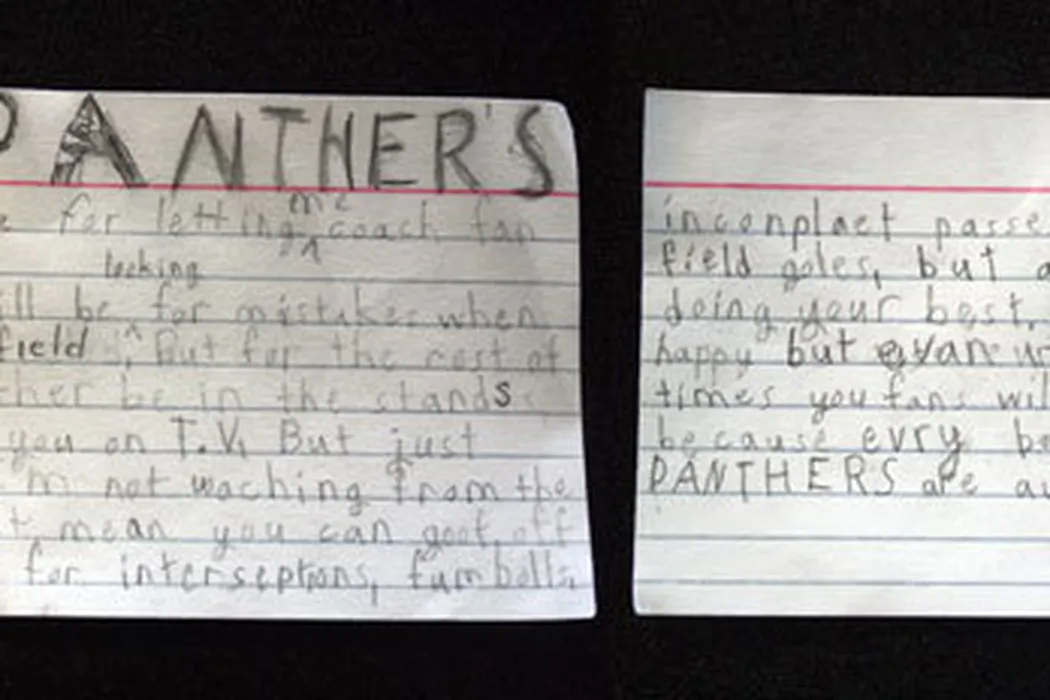 PANTHER'S
for letting me coach fan
looking
ill be for mistakes when
field But for the rest of
ther be in the stands
you on T.V. But just
m not waching from the
t mean you can goof off
for interseptions, fumbolls,
inconplaet passe
field goles, but a
doing your best.
happy but
times you fans wil
because evry be
PANTHERS are au